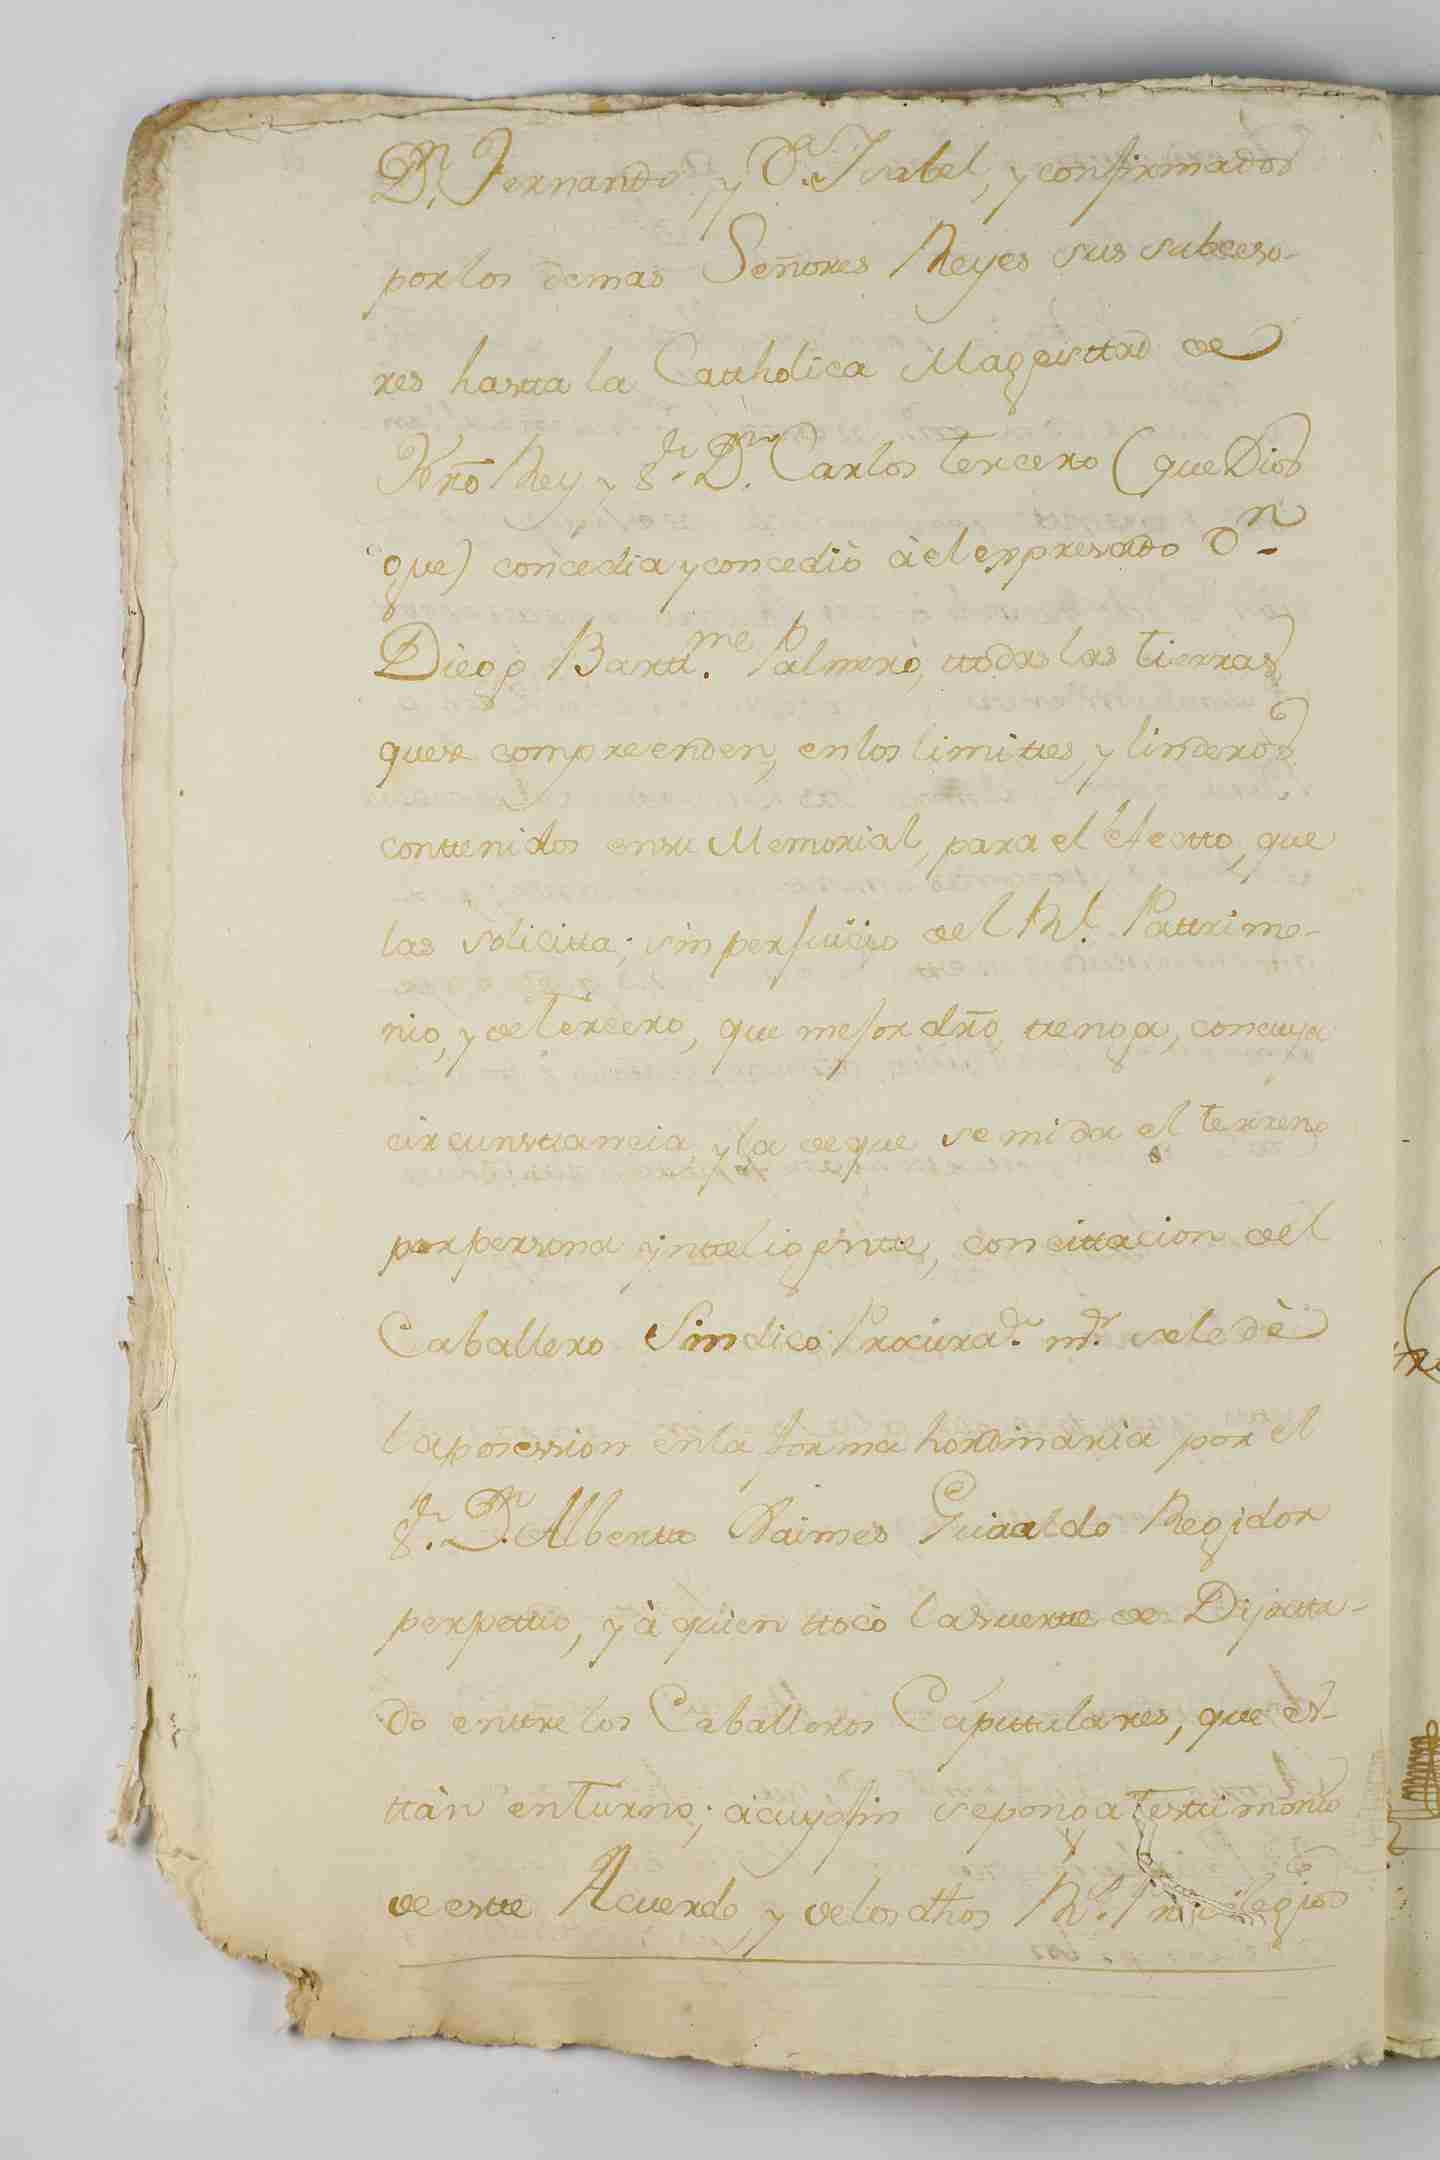 Dn. Fernando, y Da. Isabel, y confirmados
por los demas Señores Reyes sus subceso-
res hastta la Catthòlica Magesttad de
Nrō Rey y Sr. Dn. Carlos tercero (que Dios
gue) concedia y concediò à el expresado Dn.
Diego Bartt.me Palmero, ttodas las tierras
que se compreenden, en los limittes, y linderos
conttenidos en su Memorial, para el efectto, que
las solicitta; sin perjuicio del Rl. Pattrimo-
nio, y de tercero, que mejor dr̄o ttenga, con cuya
circunsttancia, y la de que se mida el terreno
por persona ynttelig̃entte, con cittacion del
Caballero Sindico Procurador. mr. se le dè
la posession en la forma hordinaria por el
Sr. Dn. Albertto Jaimes Guiraldo Regidor
perpettuo, y à quien ttocò la suertte de Diputta-
do enttre los Caballeros Capittulares, que es-
ttàn en turno; à cuyo fin se ponga testtimonio
de estte Acuerdo, y de los dhos Rs. Privilegios